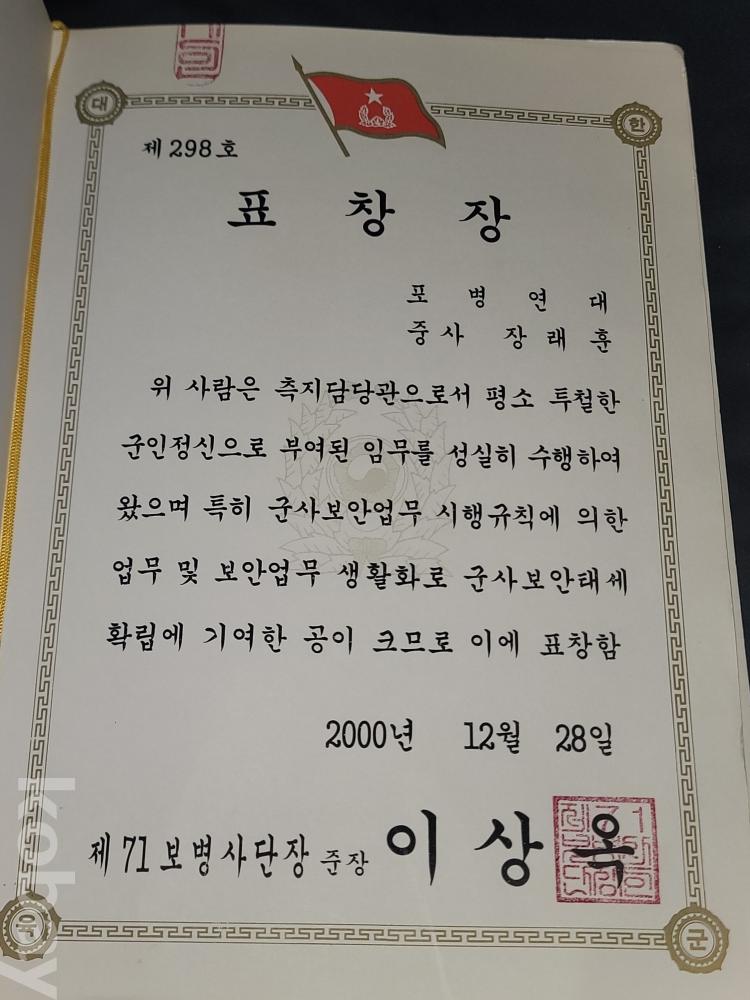 대 한
제 298 호
표 창 장
포 병 연 대
중사 장래훈
위 사람은 측지담당관으로서 평소 투철한
군인정신으로 부여된 임무를 성실히 수행하여
왔으며 특히 군사보안업무 시행규칙에 의한
업무 및 보안업무 생활화로 군사보안태세
확립에 기여한 공이 크므로 이에 표창함
2000년 12월 28일
제 71 보병사단장 준장 이 상 옥
육 군
kobay